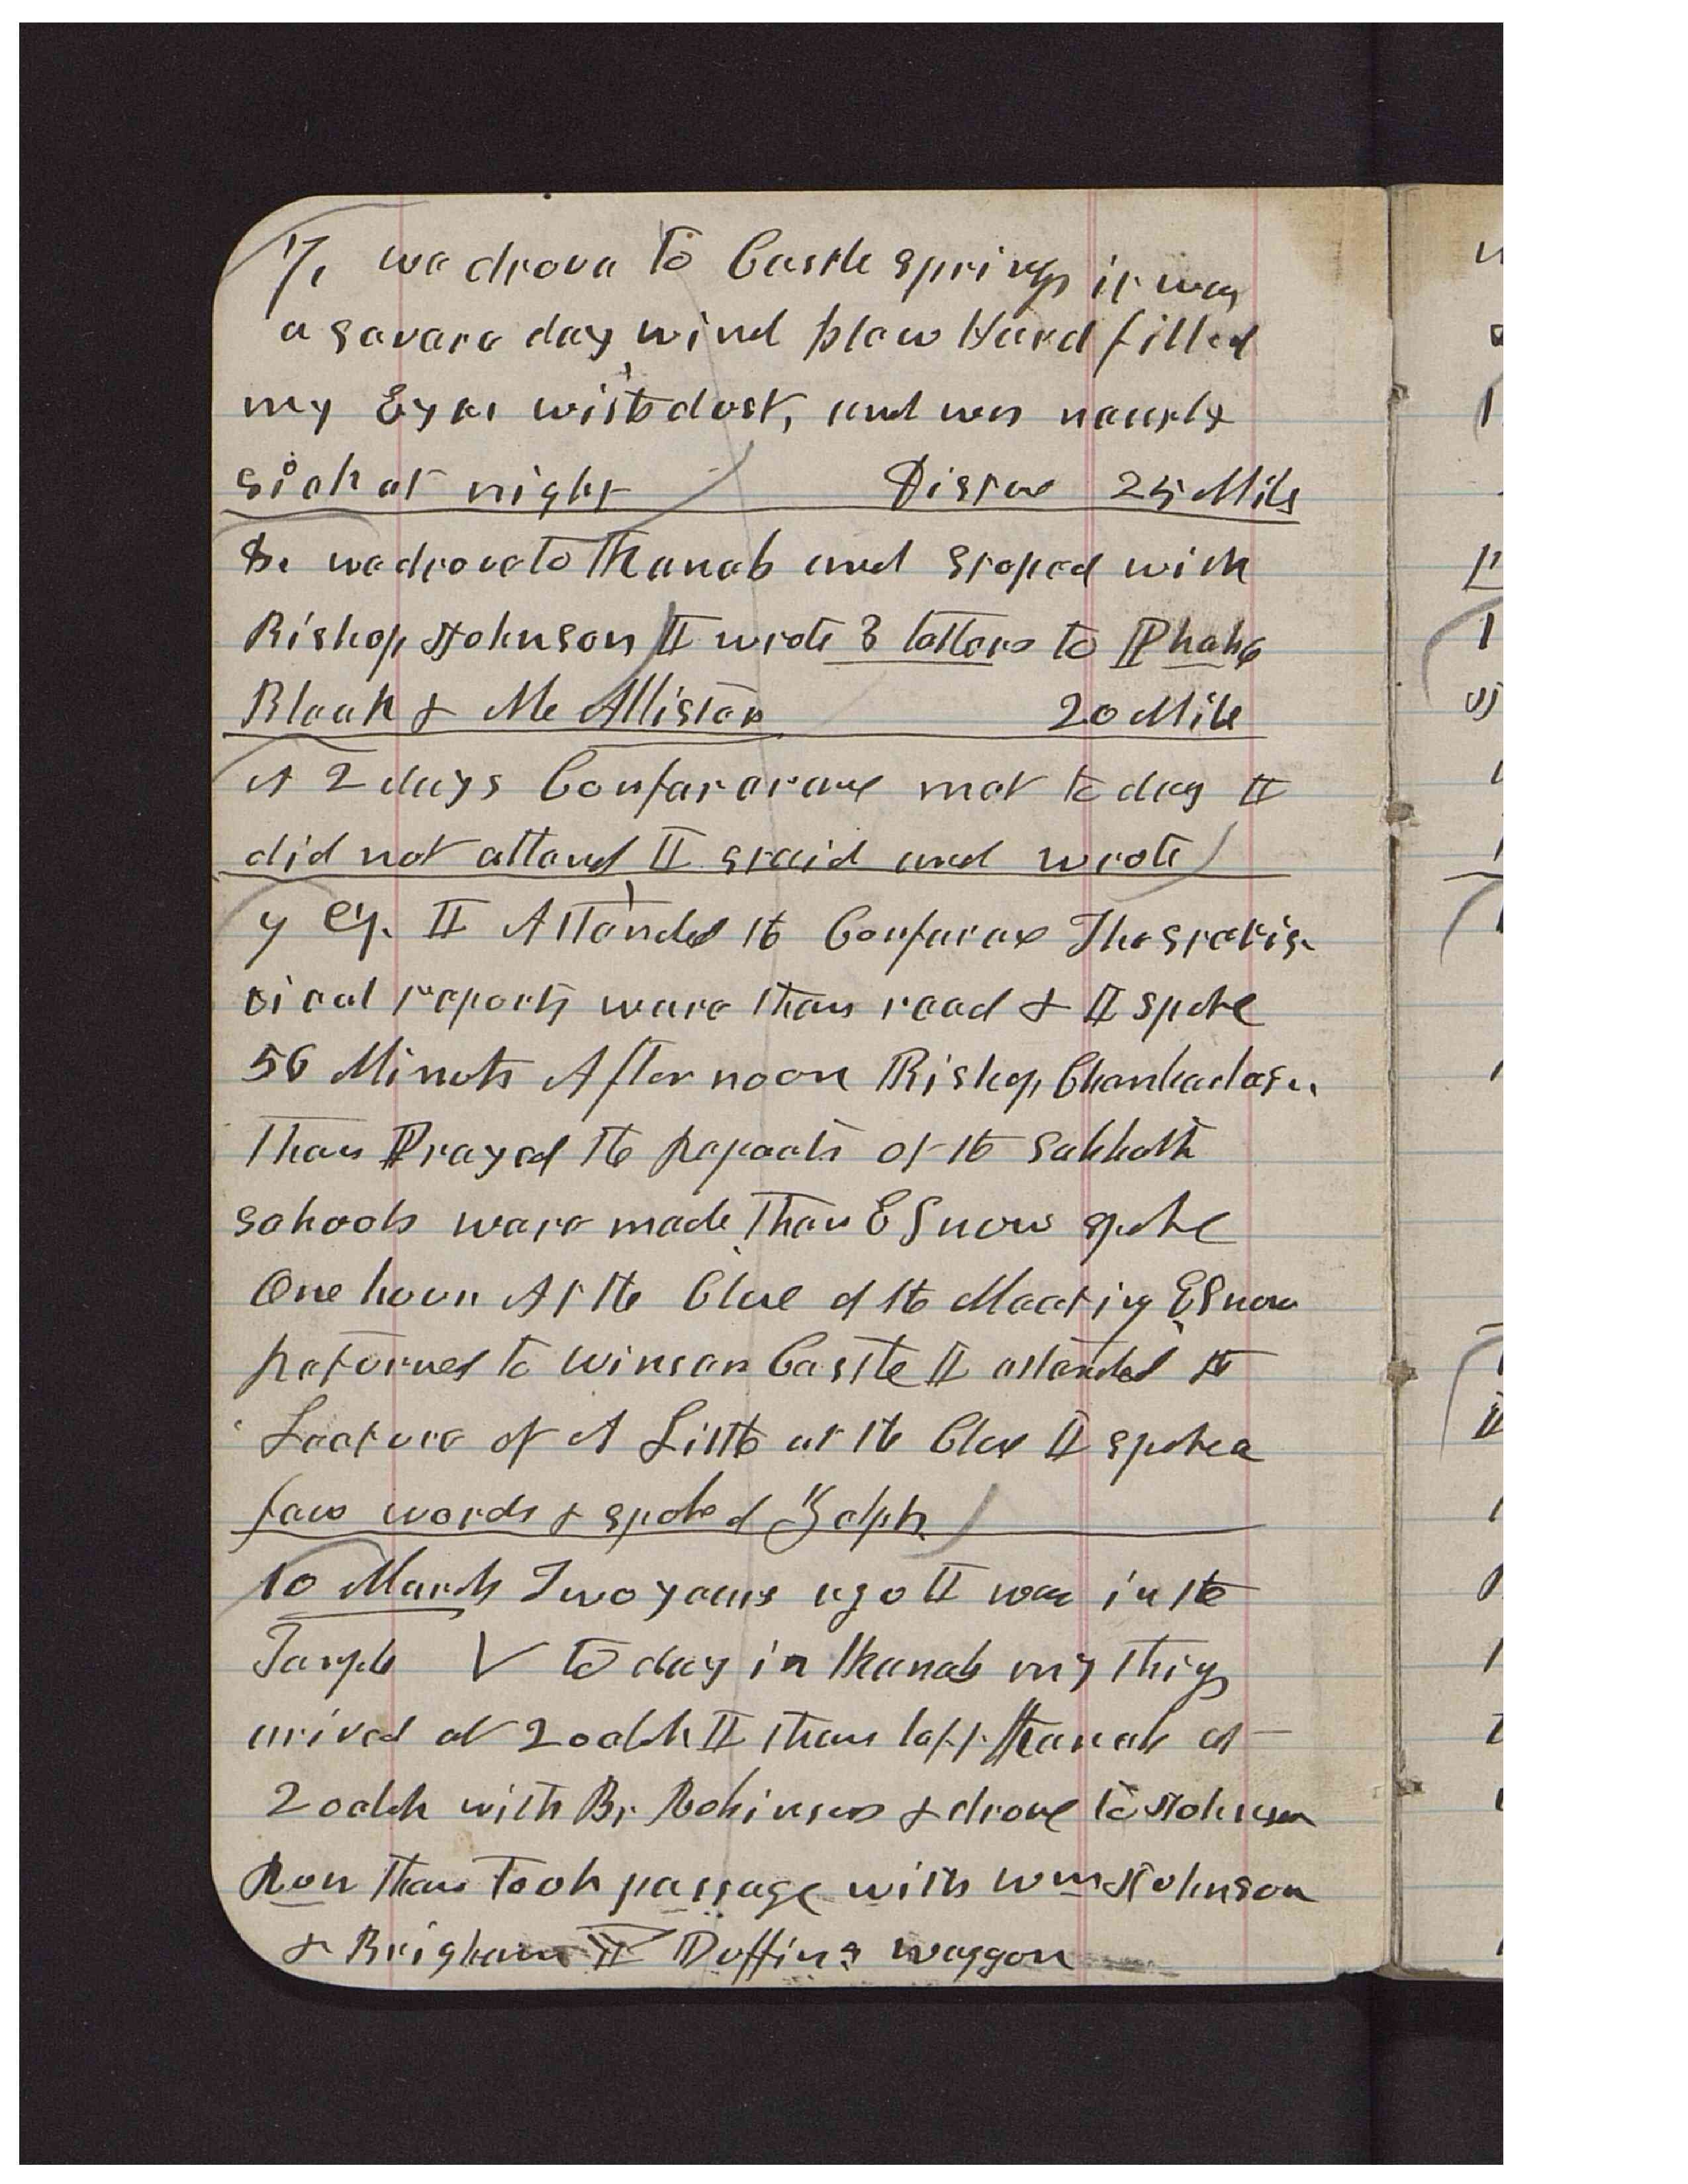 7, we drove to Castle springs it was
a severe day wind blew Hard filled
my Eyes with dust, and was nearly
sick at night Distance 25 Mils
8. we drove to Kanab and stoped with
Bishop Johnson I wrote 3 letters to Phebe
Bleak & McAllister 20 Mile
A 2 days Conferance met to day I
did not attend I staid and wrote
9 I Attended the Conferance The statis
tical reports ware then read & I spoke
56 Minuts Afternoon Bishop
then Prayed the repoats of the Sabbath
schools ware made Then E Snow spoke
One hour At the Close of the Meeting E Snow
returned to Winsor Castle I attended the
Lecture of A Little at the Close I spoke a
few words & spoke of Zelph
10 March Two years ago I was in the
Temple V to day in Kanab my things
arived at 2 oclk I then left Kanab at
2 oclok with Br Robinson & drove to Johnson
Run then took passage with Wm Johnson
& Brigham Duffins waggon